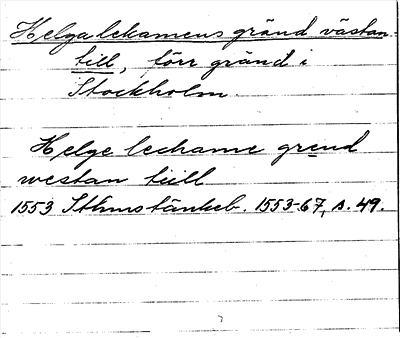 Helga lekamens gränd västan-
till, förr gränd i
Stockholm.
Helge lechame grend
westan till
1553 Sthmstänkeb. 1553-67, s. 49.